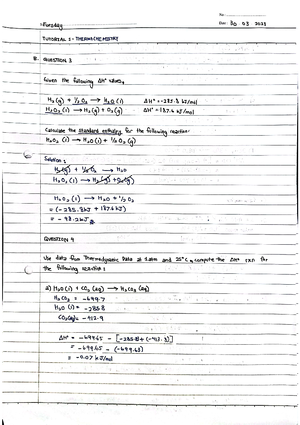 No:
Thursday
Date: 30 03 2023
TUTORIAL 1 - THERMOCHEMISTRY
QUESTION 3
Given the following ΔH° values,
H₂(g) + ½ O₂ → H₂O (l) ΔH° = -285.8 kJ/mol
H₂O₂ (l) → H₂(g) + O₂(g) ΔH° = 187.6 kJ/mol
Calculate the standard enthalpy for the following reaction
H₂O₂ (l) → H₂O (l) + ½ O₂ (g)
Solution :
H₂(g) + ½ O₂ → H₂O
H₂O₂ (l) → H₂(g) + O₂(g)
H₂O₂ (l) → H₂O + ½ O₂
= (-285.8kJ + 187.6kJ)
= -98.2kJ
QUESTION 4
Use data from Thermodynamic Data at 1 atm and 25°C, compute the ΔH° rxn for
the following reaction :
a) H₂O (l) + CO₂ (aq) → H₂CO₃ (aq)
H₂CO₃ = -699.7
H₂O (l) = -285.8
CO₂(aq) = -412.9
ΔH° = -699.65 - [-285.8 + (-412.9)]
= -699.65 - (-699.63)
= -0.07 kJ/mol